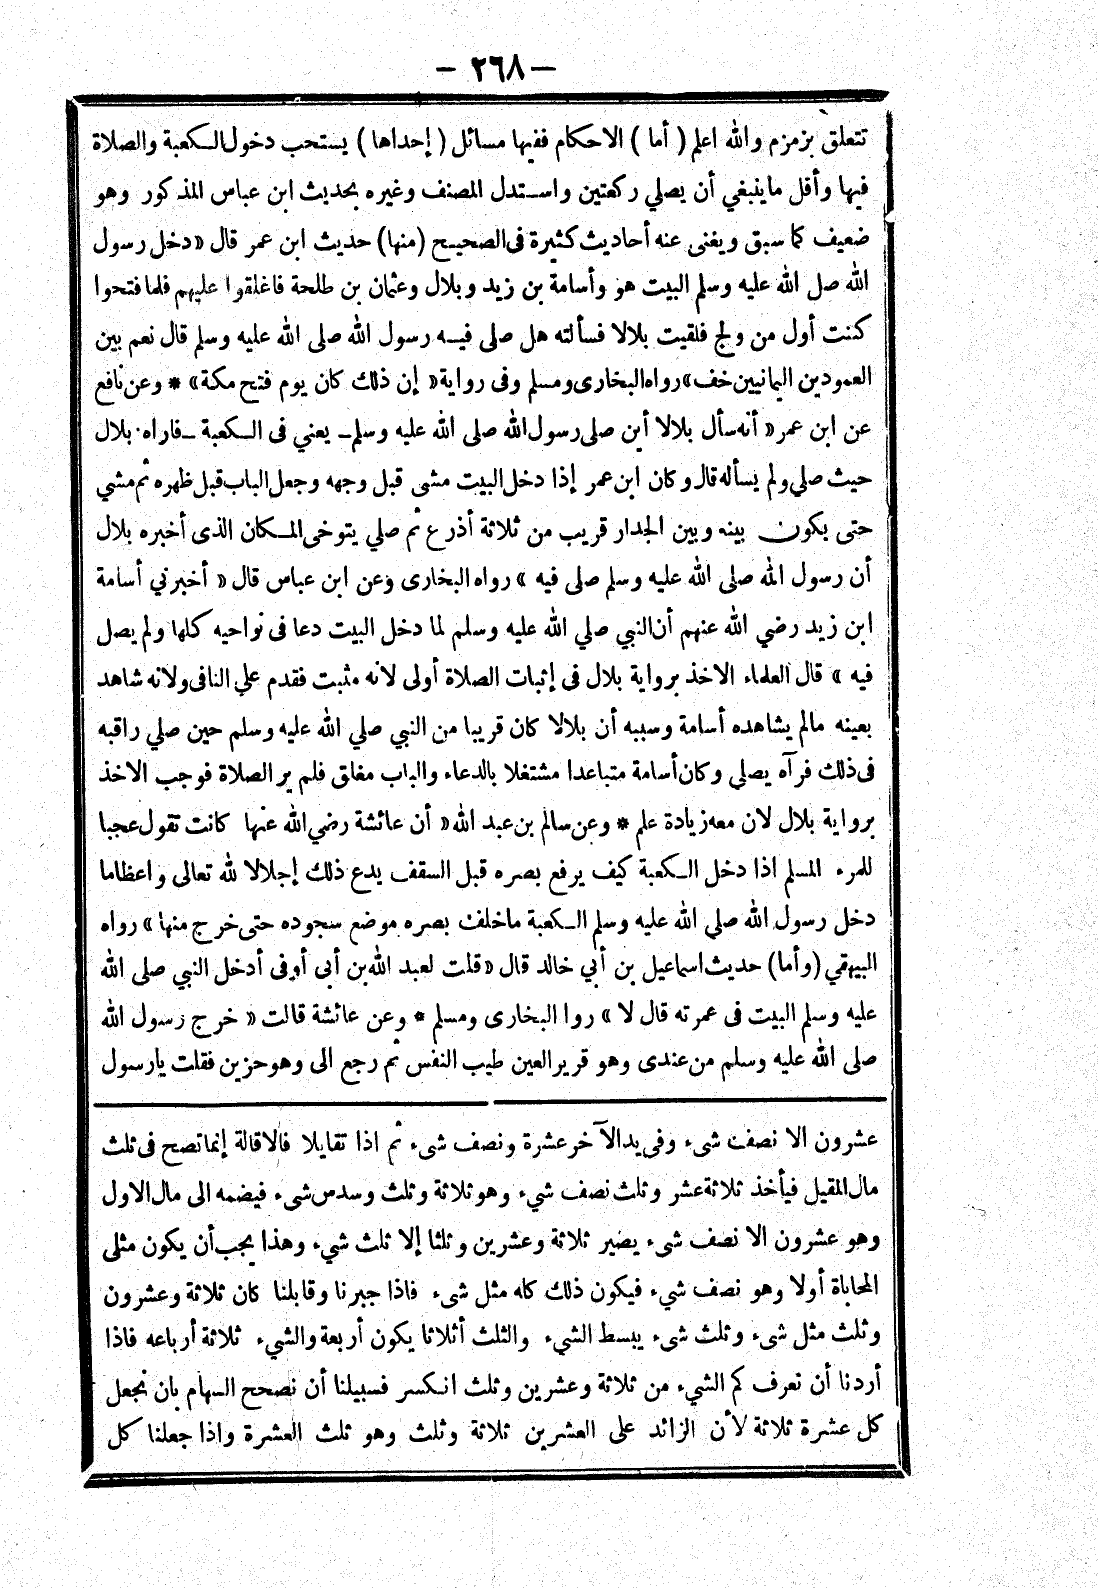 — ٢٦٨ —
تتعلق بزمزم والله اعلم ( أما ) الاحكام ففيها مسائل ( إحداها ) يستحب دخول الكعبة والصلاة
فيها وأقل ماينبغي أن يصلي ركعتين واستدل المصنف وغيره بحديث ابن عباس المذكور وهو
ضعيف كما سبق ويغنى عنه أحاديث كثيرة فى الصحيح (منها) حديث ابن عمر قال « دخل رسول
الله صل الله عليه وسلم البيت هو وأسامة بن زيد وبلال وعثمان بن طلحة فاغلقوا عليهم فلما فتحوا
كنت أول من ولج فلقيت بلالا فسألته هل صلى فيه رسول الله صلى الله عليه وسلم قال نعم بين
العمودين اليمانيين خف» رواه البخارى ومسلم وفى رواية « إن ذلك كان يوم فتح مكة» * وعن نافع
عن ابن عمر « أنه سأل بلالا أين صلى رسول الله صلى الله عليه وسلم ــ يعني فى الكعبة ــ فاراه بلال
حيث صلي ولم يسأله قال وكان ابن عمر إذا دخل البيت مشى قبل وجهه وجعل الباب قبل ظهره ثم مشي
حتى يكون بينه وبين الجدار قريب من ثلاثة أذرع ثم صلي يتوخى المكان الذى أخبره بلال
أن رسول الله صلى الله عليه وسلم صلى فيه » رواه البخارى وعن ابن عباس قال « أخبرني أسامة
ابن زيد رضي الله عنهم أن النبي صلي الله عليه وسلم لما دخل البيت دعا فى نواحيه كلها ولم يصل
فيه » قال العلماء الاخذ برواية بلال فى إثبات الصلاة أولى لانه مثبت فقدم علي النافى ولانه شاهد
بعينه مالم يشاهده أسامة وسببه أن بلالا كان قريبا من النبي صلي الله عليه وسلم حين صلي راقبه
فى ذلك فرآه يصلي وكان أسامة متباعدا مشتغلا بالدعاء والباب مغلق فلم ير الصلاة فوجب الاخذ
برواية بلال لان معه زيادة علم * وعن سالم بن عبد الله « أن عائشة رضي الله عنها كانت تقول عجبا
للمرء المسلم اذا دخل الكعبة كيف يرفع بصره قبل السقف يدع ذلك إجلالا لله تعالى واعظاما
دخل رسول الله صلي الله عليه وسلم الكعبة ماخلف بصره موضع سجوده حتى خرج منها» رواه
البيهقي (وأما) حديث اسماعيل بن أبي خالد قال « قلت لعبد الله بن أبى أوفى أدخل النبي صلى الله
عليه وسلم البيت فى عمرته قال لا » روا البخارى ومسلم * وعن عائشة قالت « خرج رسول الله
صلى الله عليه وسلم من عندى وهو قرير العين طيب النفس ثم رجع الى وهو حزين فقلت يارسول
عشرون الا نصف شىء وفى يد الآخر عشرة ونصف شىء ثم اذا تقايلا فالاقالة إنما تصح فى ثلث
مال المقيل فيأخذ ثلاثة عشر وثلث نصف شيء وهو ثلاثة وثلث وسدس شىء فيضمه الى مال الاول
وهو عشرون الا نصف شىء يصير ثلاثة وعشرين وثلثا إلا ثلث شيء وهذا يجب أن يكون مثلى
المحاباة أولا وهو نصف شيء فيكون ذلك كله مثل شىء فاذا جبرنا وقابلنا كان ثلاثة وعشرون
وثلث مثل شىء وثلث شىء يبسط الشيء والثلث أثلاثا يكون أربعة والشيء ثلاثة أرباعه فاذا
أردنا أن نعرف كم الشيء من ثلاثة وعشرين وثلث انكسر فسبيلنا أن نصحح السهام بان نجعل
كل عشرة ثلاثة لأن الزائد على العشرين ثلاثة وثلث وهو ثلث العشرة واذا جعلنا كل